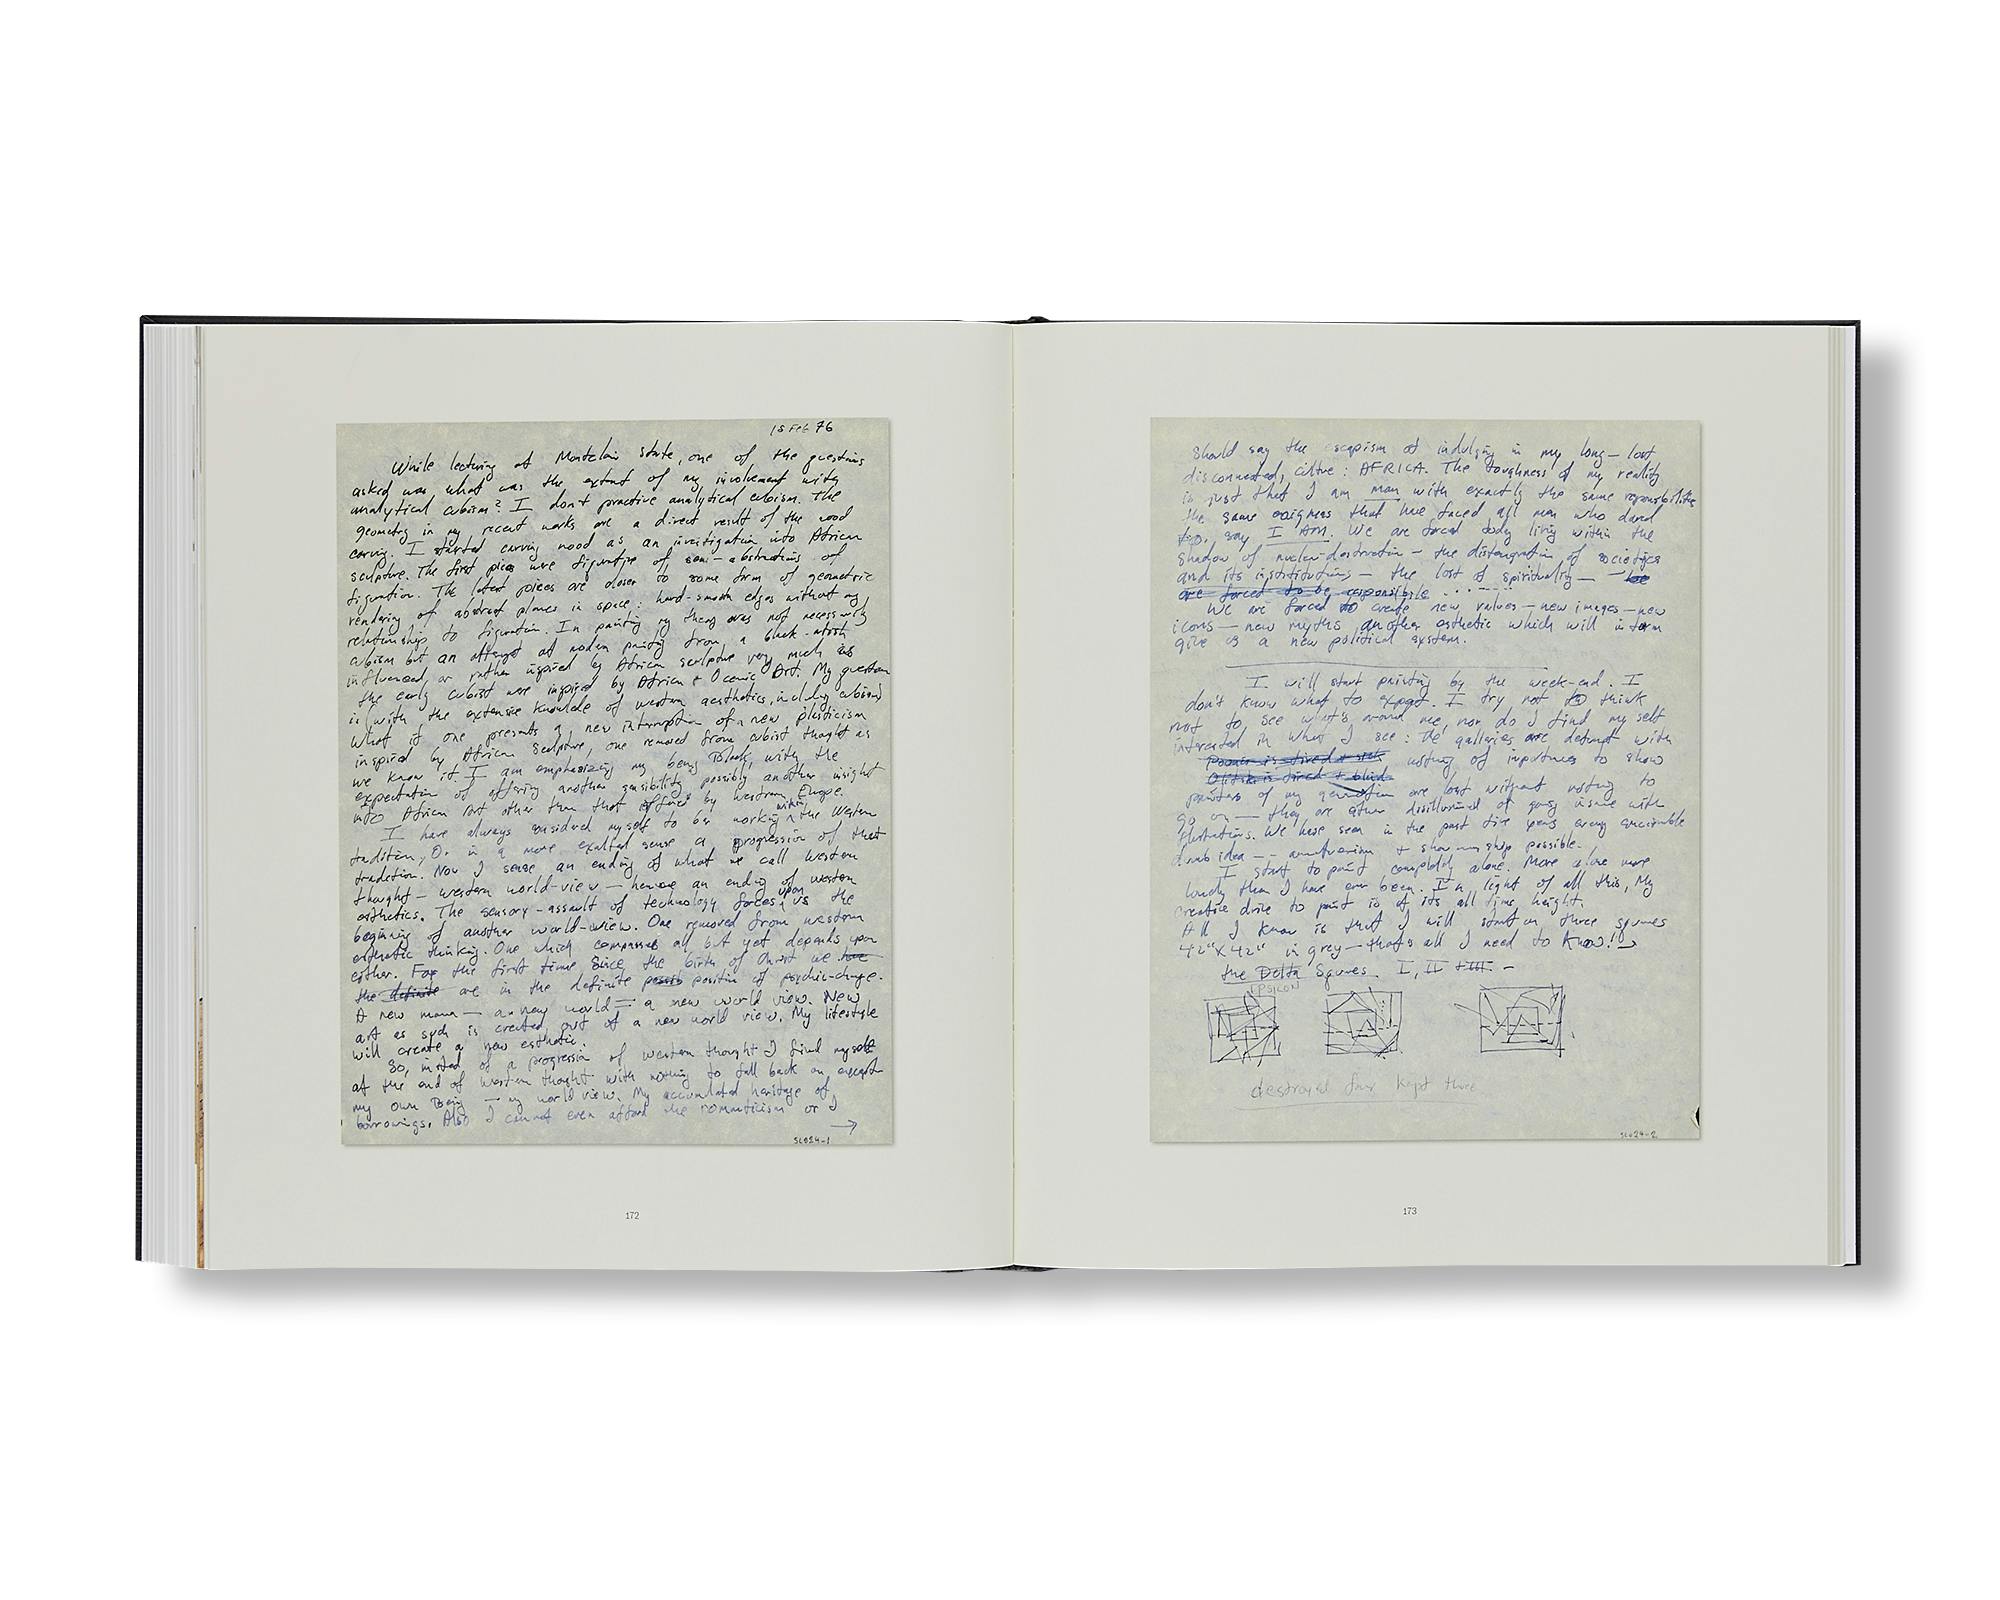 15 Feb 76
While lecturing at Montclair State, one of the questions
asked was, what was the extent of my involvement with
analytical cubism? I don't practive analytical cubism. The
geometry in my recent works are a direct result of the wood
carving. I started carving wood as an investigation into African
sculpture. The first pices were figurative of, semi-abstractions of
figuration. The latest pieces are closer to some form of geometric
rendering of abstract planes in space: hard-smooth edges without any
relationship to figuration. In painting my theory was not necessarily
cubism but an attempt at modern painting from a black-artist
influenced, or rather inspired by African sculpture very much as
the early cubist were inspired by African + Oceanic Art. My question
is (with the extensive knowlede of western aesthetics, including cubism)
What if one presents a new interruption of a new plasticism
inspired by African Sculpture, one removed from cubist thought as
we know it. I am emphasizing my being Black, with the
expectation of offering another sensibility, possibly another insight
into African Art other than that by Western Europe.
I have always considered myself to be working within the Western
tradition, Or in a more exalted sense a progression of that
tradition. Now I sense an ending of what we call western
thought — western world-view — hence an ending of western
esthetics. The sensory-assault of technology forces upon us the
beginning of another world-view. One removed from western
esthetic thinking. One which compasses all but yet depends upon
either. For the first time since the birth of Christ we have
the definite are in the definite position of psychic-change.
A new man — a new world — a new world view. New
art as such is created out of a new world view. My lifestyle
will create a new esthetic.
So, insted of a progression of western thought I find myself
at the end of western thought with nothing to fall back on except
my own Being — my world view. My accumulated heritage of
borrowings. Also I cannot even afford the romanticism or I
→
SL024-1
172
should say the escapism at indulging in my long-lost
disconnected, culture: AFRICA. The toughness of my reality
is just that I am man with exactly the same responsibilities
the same enigmas that have faced all men who dared
to, say I AM. We are forced today living within the
shadow of nuclear-destruction — the distengration of societies
and its institutions — the lost of spirituality — we
are forced to be responsible . . . . .
We are forced to create new values — new images — new
icons — new myths another esthetic which will in turn
give us a new political system.
I will start painting by the week-end. I
don't know what to expect. I try not to think
not to, see what's around me, nor do I find my self
interested in what I see: The galleries are defunct with
Poons is tired + sick nothing of importance to show
Olitski is tired + blind
painters of my generation are lost without nothing to
go on — they are either disillusioned or going insane with
frustrations. We have seen in the past five years every
dumb idea — + showmanship possible.
I start to paint completely alone. More alone more
lonely than I have ever been. In light of all this, My
creative drive to paint is at its all time height.
All I know is that I will start on three squares
42"x42" in grey — that's all I need to know! →
the Delta Squares I, II III —
EPSILON
destroyed four kept three
SL024-2
173